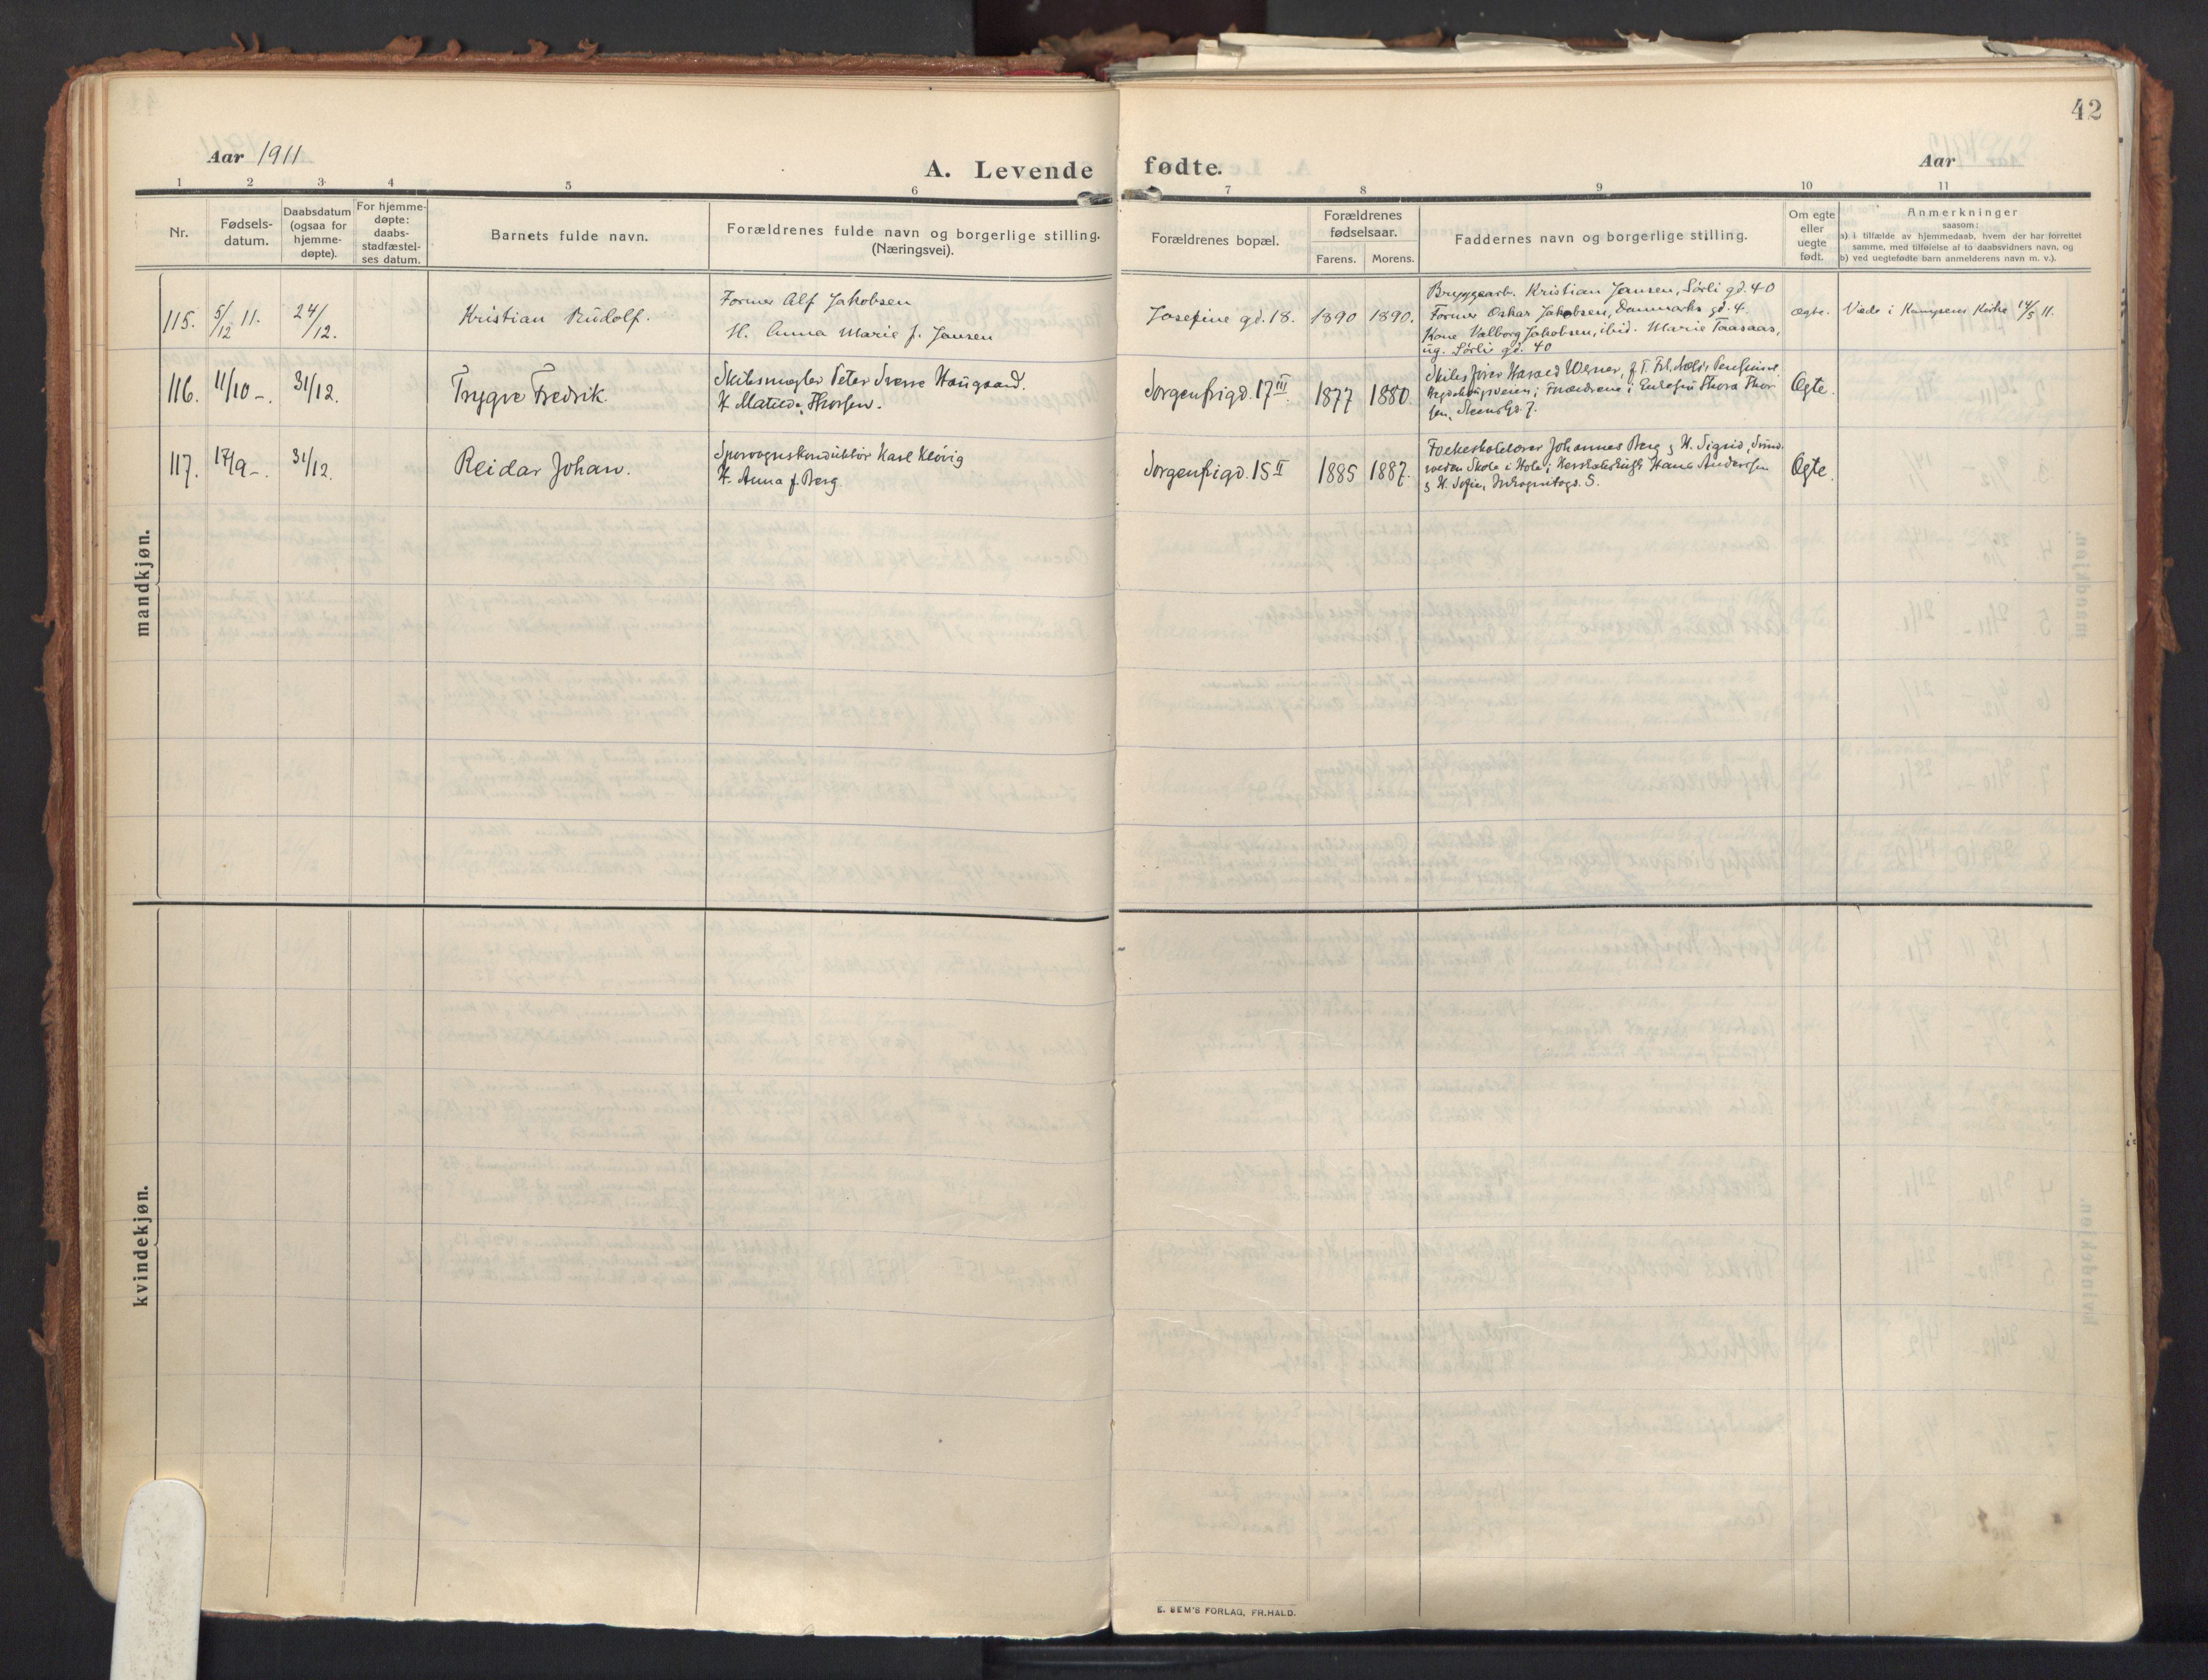 42
Aar 1911
A. Levende fødte.
Aar
1 2 3 4 5 6 7 8 9 10 11
Nr.
Fødsels-
datum.
Daabsdatum
(ogsaa for
hjemme-
døpte).
For hjemme-
døpte:
daabs-
stadfæstel-
ses datum.
Barnets fulde navn.
Forældrenes fulde navn og borgerlige stilling.
(Næringsvei).
Forældrenes bopæl.
Forældrenes
fødselsaar.
Farens. Morens.
Faddernes navn og borgerlige stilling.
Om egte
eller
uegte
født.
Anmerkninger
saasom:
a) i tilfælde av hjemmedaab, hvem der har forrettet
samme, med tilføielse af to daabsvidners navn, og
b) ved uegtefødte barn anmelderens navn m. v.).
mandkjøn.
115. 5/12 11. 24/12. Kristian Rudolf.
Former Alf Jakobsen
H. Anna Marie f. Jansen
Josefine gd. 18. 1890 1890.
Bryggearb. Kristian Jansen, Sörli gd. 40
Former Oskar Jakobsen, Danmarks gd. 4.
Kone Valborg Jakobsen, ibid. Marie Taasaas,
ug. Sörli gd. 40
ægte. Viede i Kampens Kirke 14/5 11.
116. 11/10 -. 31/12. Trygve Fredrik.
Skibsmegler Peter Sverre Haugaard.
H. Matilde Thorsen.
Sorgenfrigd. 17 III. 1877 1880
Skibsfører Harald Werner,
Forældrene; Thora Thor-
sen, Steensgd. 7.
Egte.
117. 17/9 -. 31/12. Reidar Johan.
Sporvognskonduktör Karl Klövig
H. Anna f. Berg.
Sorgenfrigd. 15 II 1885 1887.
Folkeskolelærer Johannes Berg & H. Sigrid,
Skole i Hole; Hans Anderssen
& H. Sofie, Inkognitogd. 5.
Egte.
kvindekjøn.
E. SEM'S FORLAG, FR.HALD.